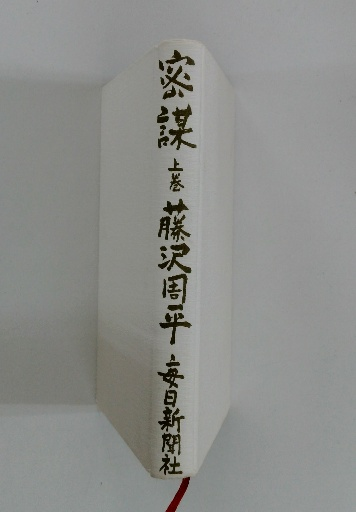 密謀 上巻 藤沢周平 毎日新聞社